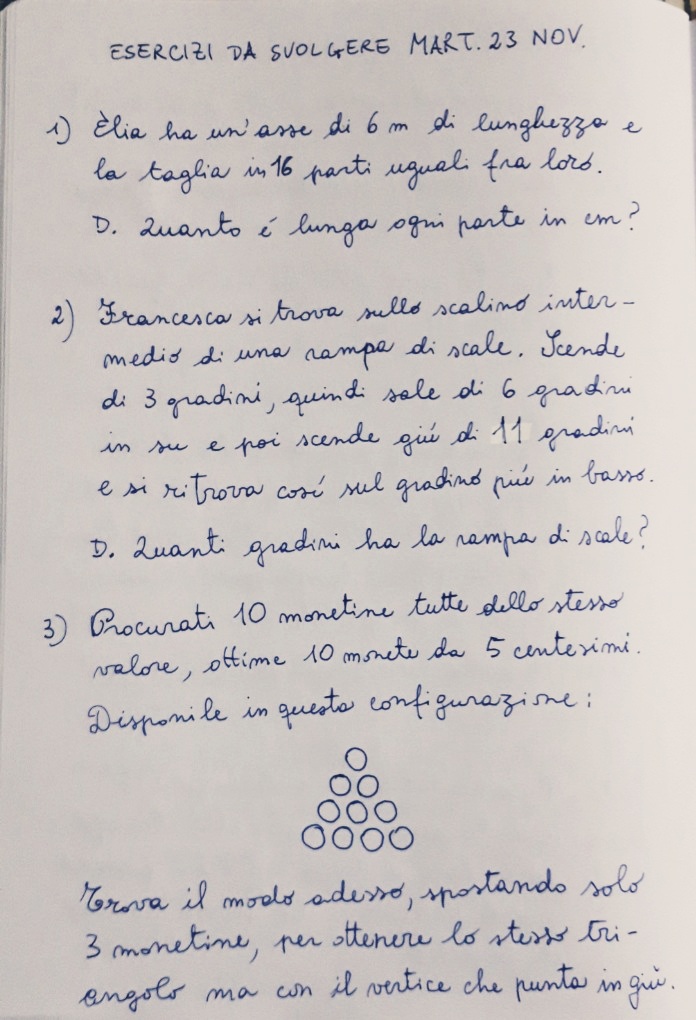 ESERCIZI DA SVOLGERE MART. 23 NOV.
1) Èlia ha un'asse di 6 m di lunghezza e
la taglia in 16 parti uguali fra loro.
D. Quanto é lunga ogni parte in cm?
2) Francesca si trova sullo scalino inter-
medio di una rampa di scale. Scende
di 3 gradini, quindi sale di 6 gradini
in su e poi scende giú di 11 gradini
e si ritrova cosí sul gradino piú in basso.
D. Quanti gradini ha la rampa di scale?
3) Procurati 10 monetine tutte dello stesso
valore, ottime 10 monete da 5 centesimi.
Disponile in questa configurazione:
Trova il modo adesso, spostando solo
3 monetine, per ottenere lo stesso tri-
angolo ma con il vertice che punta in giù.